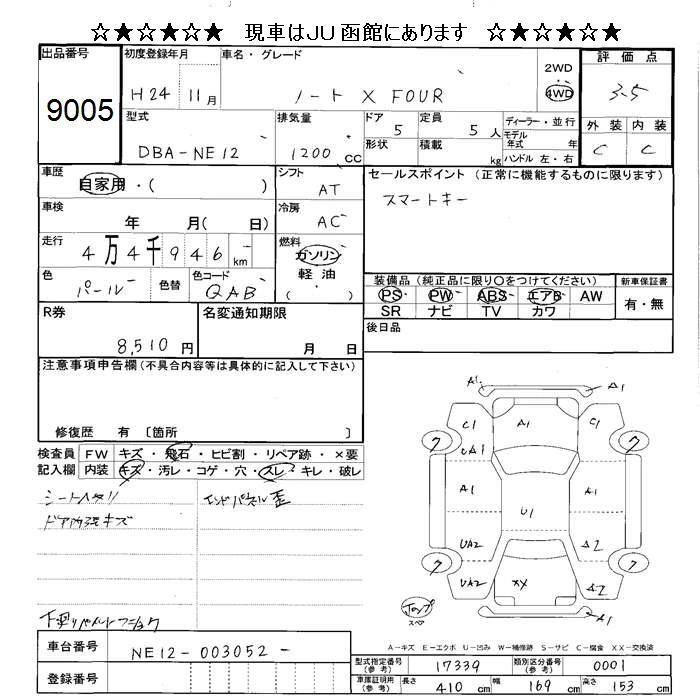 ☆★☆★☆★ 現車はJU函館にあります ☆★☆★☆★
出品番号 9005
初度登録年月 H24 11月
車名・グレード ノート X FOUR
2WD 4WD
評価点 3.5
型式 DBA-NE12
排気量 1200 CC
ドア 5
定員 5人
形状 積載 kg
ディーラー・並行
モデル年式 年
ハンドル 左・右
外装 内装
C C
車歴 自家用・( )
シフト AT
セールスポイント (正常に機能するものに限ります)
スマートキー
車検 年 月( 日)
冷房 AC
走行 4万4千946 km
燃料 ガソリン 軽油 ( )
色 パール 色替 色コード QAB
装備品 (純正品に限り○をつけてください)
新車保証書
PS PW ABS エアB AW
SR ナビ TV カワ
有・無
R券 8,510円
名変通知期限 月 日
後日品
注意事項申告欄 (不具合内容等は具体的に記入して下さい)
修復歴 有 〔箇所 〕
検査員 FW キズ・飛石・ヒビ割・リペア跡・×要
記入欄 内装 キズ・汚レ・コゲ・穴・スレ・キレ・破レ
シートヘタリ エンドパネル歪
ドア内張キズ
A1 A1
C1 A1 C1
7 UA1 7
A1 A1
U1
UA2 A2
7 7
UA2 XX A2
A1
スペア
A-キズ E-エクボ U-凹み W-補修跡 S-サビ C-腐食 XX-交換済
車台番号 NE12-003052-
登録番号
型式指定番号 (参考) 17339
類別区分番号 (参考) 0001
車庫証明用 (参考) 長さ 410 cm 幅 169 cm 高さ 153 cm